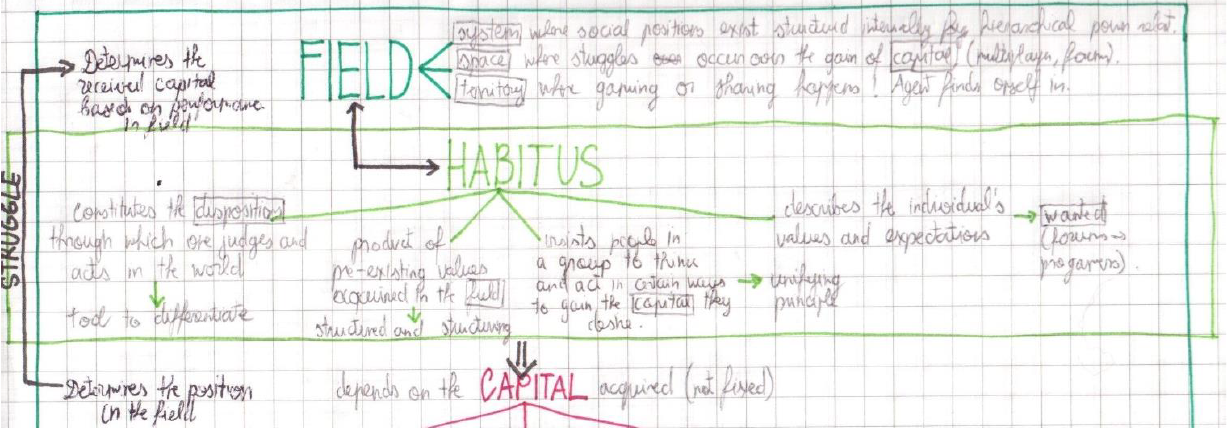 FIELD
system where social positions exist structured internally by hierarchical power relat.
space where struggles occur over the gain of capital (multiplayer, forum).
territory where gaming or sharing happens! Agent finds oneself in.
Determines the
received capital
based on performance
in field
STRUGGLE
HABITUS
constitutes the disposition
through which one judges and
acts in the world
tool to differentiate
product of
pre-existing values
acquired in the field
structured and structuring
insists people in
a group to think
and act in certain ways
to gain the capital they
desire.
unifying
principle
describes the individual's
values and expectations
wanted
(forums →
progamers).
Determines the position
in the field
depends on the CAPITAL acquired (not fixed)